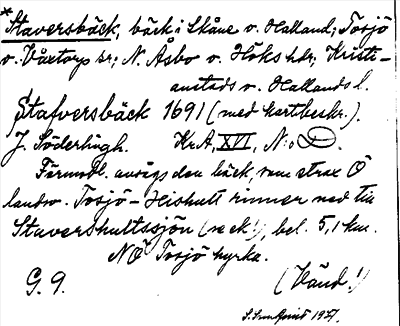 *Staversbäck, bäck i Skåne o. Halland; Tosjö
o. Våxtorp sr; N. Åsbo o. Höks hdr; Kristi-
anstads o. Hallands l.
Stafversbäck 1691 (med kartbeskr.).
J. Söderlingh. Kr.A, XVI, N:o D.
Förmodl. avsågs den bäck, som strax Ö
landsv. Tosjö–Hishult rinner ned till
Stavershultssjön (se ek!), bel. 5,1 km.
NÖ Tosjö kyrka.
G. 9. (Vänd!)
1937.